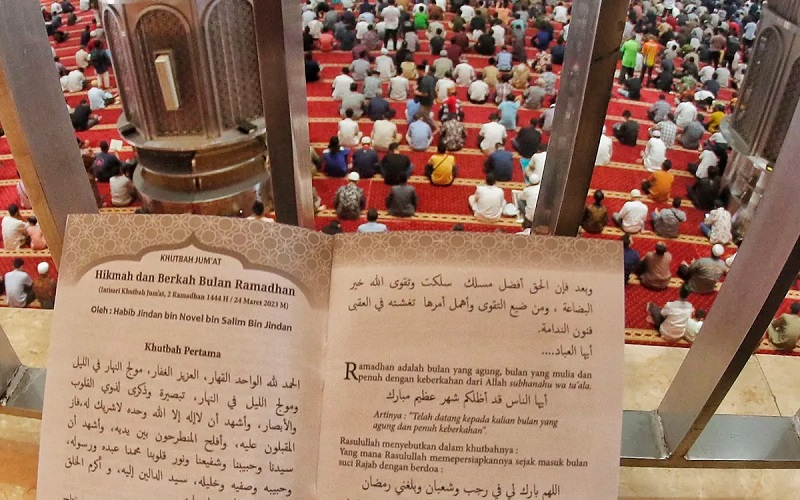 KHUTBAH JUM'AT
Hikmah dan Berkah Bulan Ramadhan
(Intisari Khutbah Jum'at, 2 Ramadhan 1444 H / 24 Maret 2023 M)
Oleh : Habib Jindan bin Novel bin Salim Bin Jindan
Khutbah Pertama
الحمد لله الواحد القهار، العزيز الغفار، مولج النهار في الليل
ومولج الليل في النهار، تبصرة وذكرى لذوي القلوب
والأبصار، وأشهد أن لاإله إلا الله وحده لاشريك له،فاز
المقبلون عليه، وأفلح المنطرحون بين يديه، وأشهد أن
سيدنا وحبيبنا وشفيعنا ونور قلوبنا محمدا عبده ورسوله،
وحبيبه وصفيه وخليله، سيد الدالين إليه، و أكرم الخلق
KHUTBAH JUM'AT
وبعد فإن الحق أفضل مسلك سلكت وتقوى الله خير
البضاعة ، ومن ضيع التقوى وأهمل أمرها تغشته في العقبى
فنون الندامة.
أيها العباد....
Ramadhan adalah bulan yang agung, bulan yang mulia dan
penuh dengan keberkahan dari Allah subhanahu wa ta'ala.
أيها الناس قد أظلكم شهر عظيم مبارك
Artinya : "Telah datang kepada kalian bulan yang
agung dan penuh keberkahan".
Rasulullah menyebutkan dalam khutbahnya :
Yang mana Rasulullah memepersiapkannya sejak masuk bulan
suci Rajab dengan berdoa :
اللهم بارك لي في رجب وشعبان وبلغني رمضان